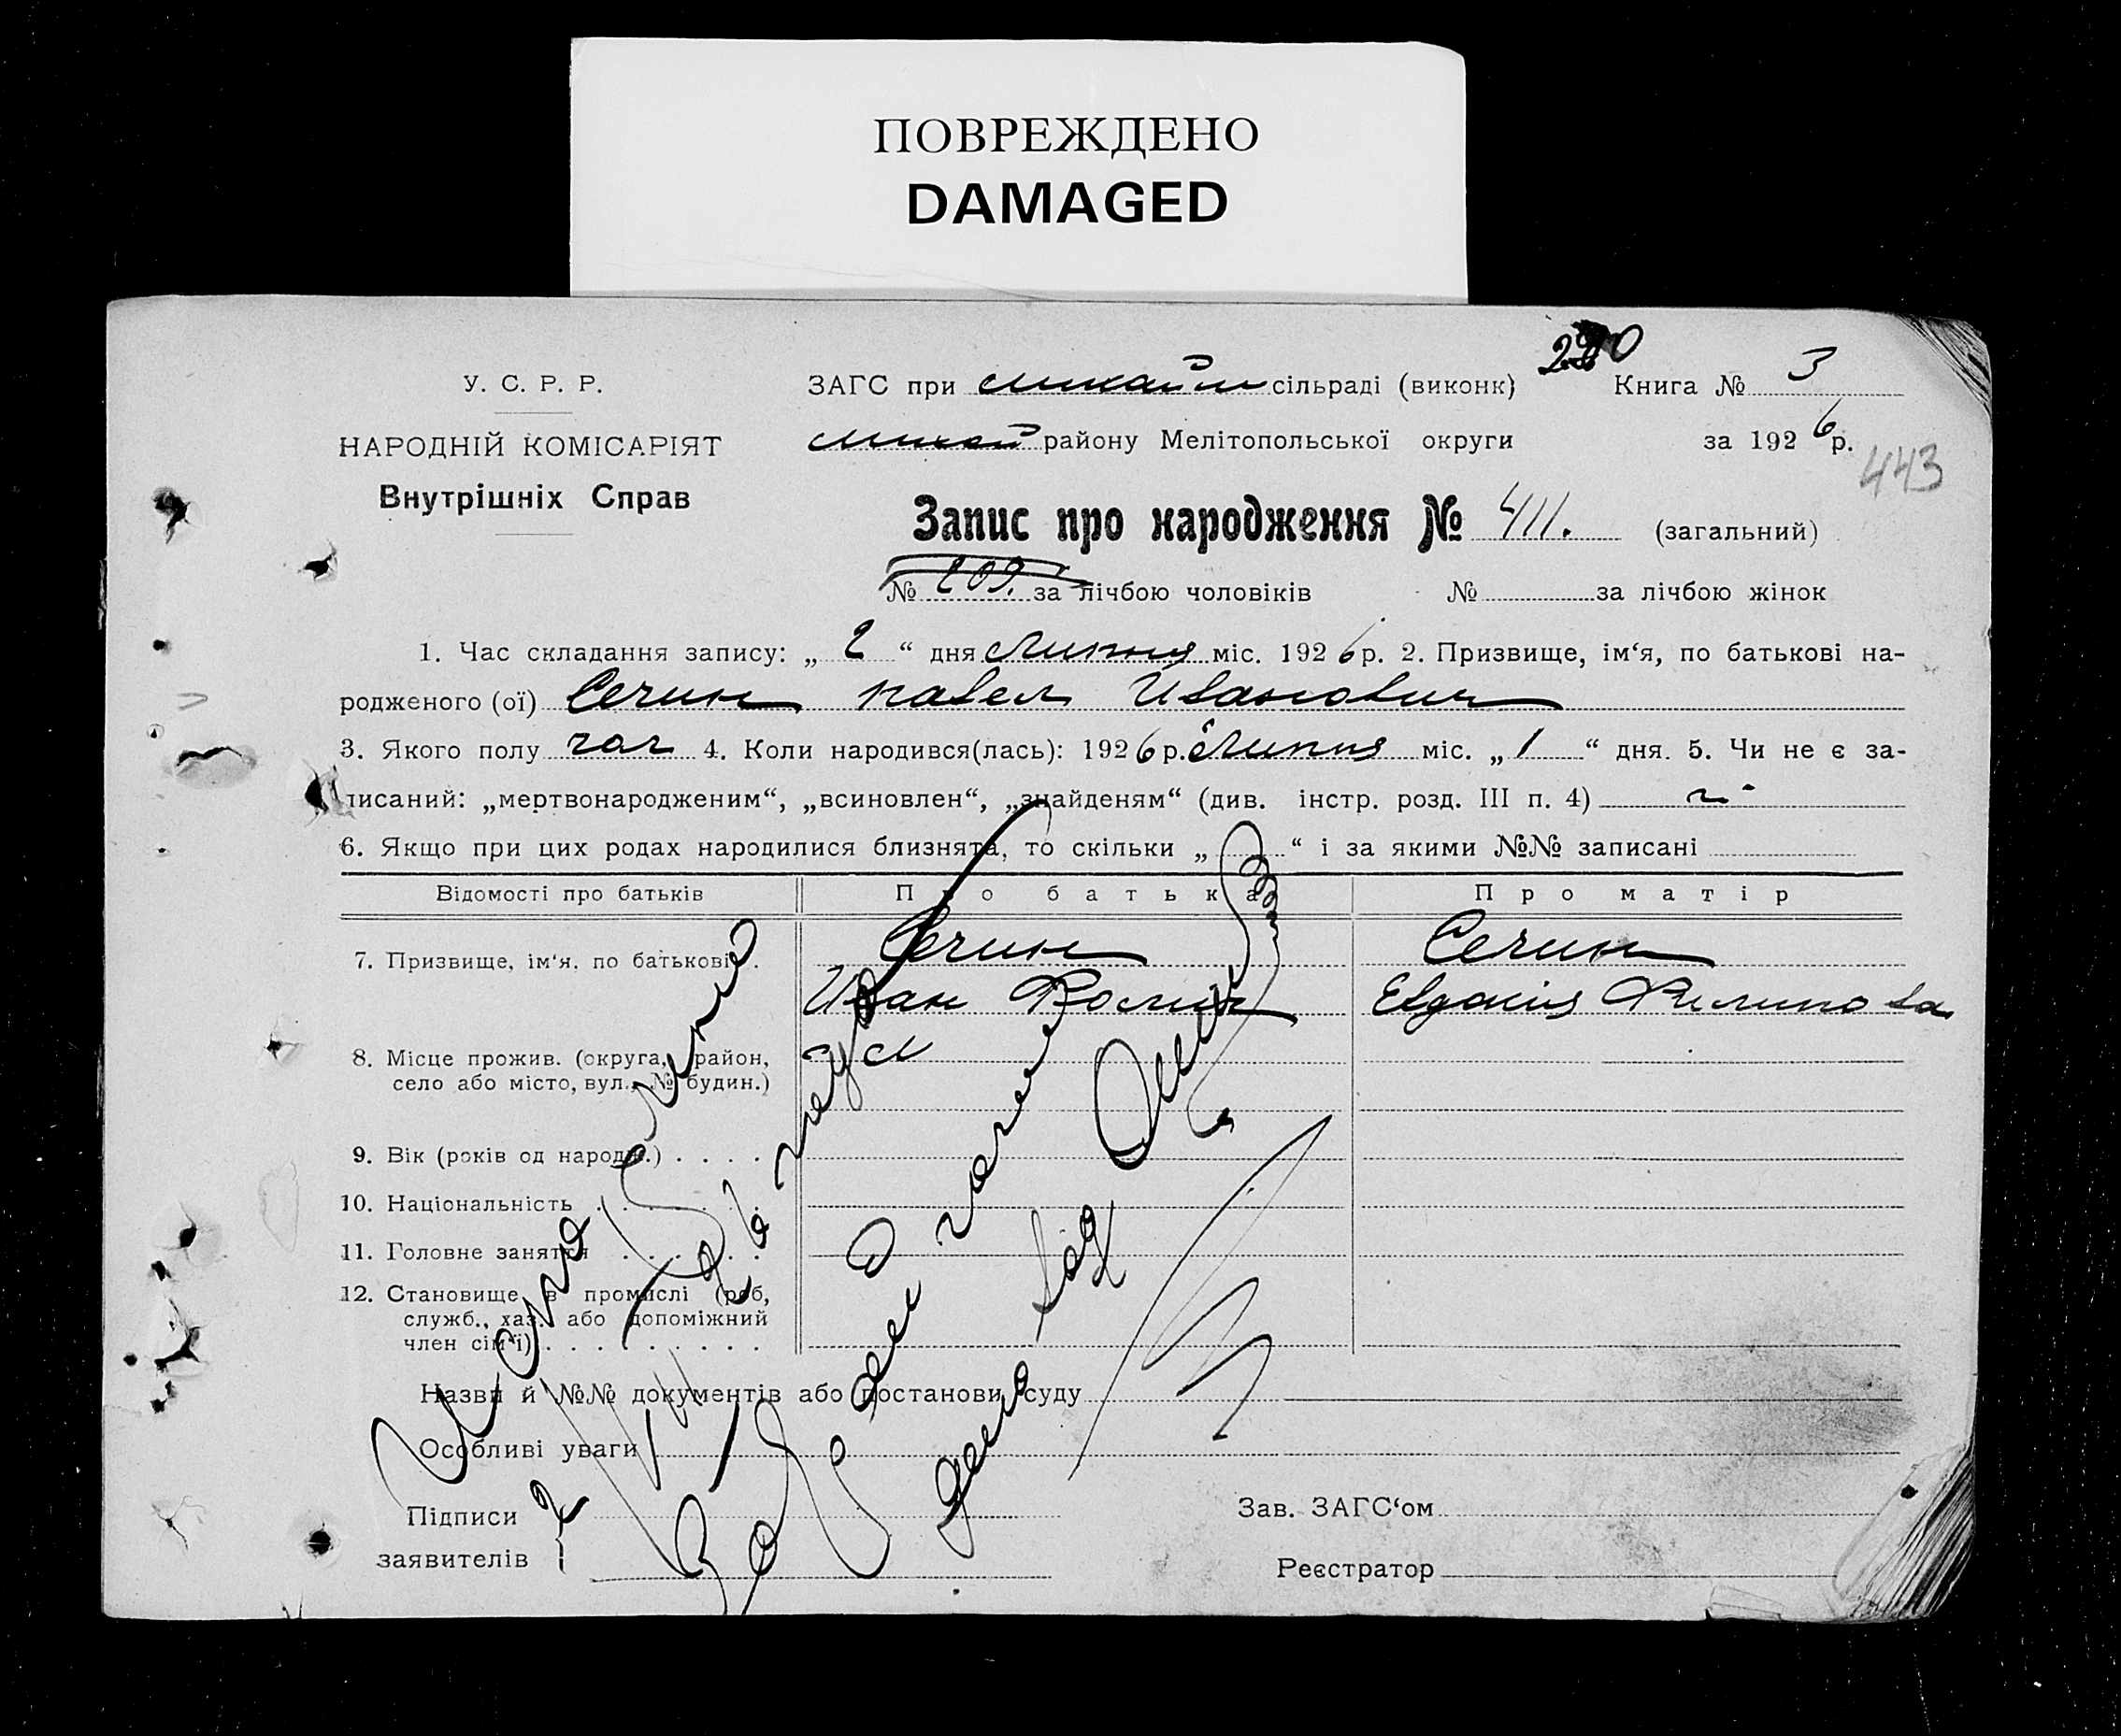 ПОВРЕЖДЕНО
DAMAGED
У. С. Р. Р.
НАРОДНІЙ КОМІСАРІЯТ
Внутрішніх Справ
ЗАГС при михайл сільраді (виконк)
Книга № 3
михай району Мелітопольської округи
за 1926 р.
443
Запис про народження № 411. (загальний)
№ 209. за лічбою чоловіків № за лічбою жінок
1. Час складання запису: „ 2 “ дня Липня міс. 1926 р. 2. Призвище, ім‘я, по батькові на-
родженого (ої) Сечин Павел Иванович
3. Якого полу чол 4. Коли народився(лась): 1926 р. Липня міс. „ 1 “ дня. 5. Чи не є за-
писаний: „мертвонародженим“, „всиновлен“, „знайденям“ (див. інстр. розд. III п. 4)
6. Якщо при цих родах народилися близнята, то скільки „ “ і за якими №№ записані
Відомості про батьків Про батька Про матір
7. Призвище, ім‘я, по батькові . Сечин Сечин
Иван Евдокия Филипова
8. Місце прожив. (округа, район,
село або місто, вул., № будин.)
9. Вік (років од народж.) . . . .
10. Національність . . . . . . .
11. Головне заняття . . . . . .
12. Становище в промислі (роб,
служб., хаз. або допоміжний
член сім‘ї) . . . . . . . . .
Назви й №№ документів або постанови суду
Особливі уваги
Підписи
заявителів
Зав. ЗАГС‘ом
Реєстратор